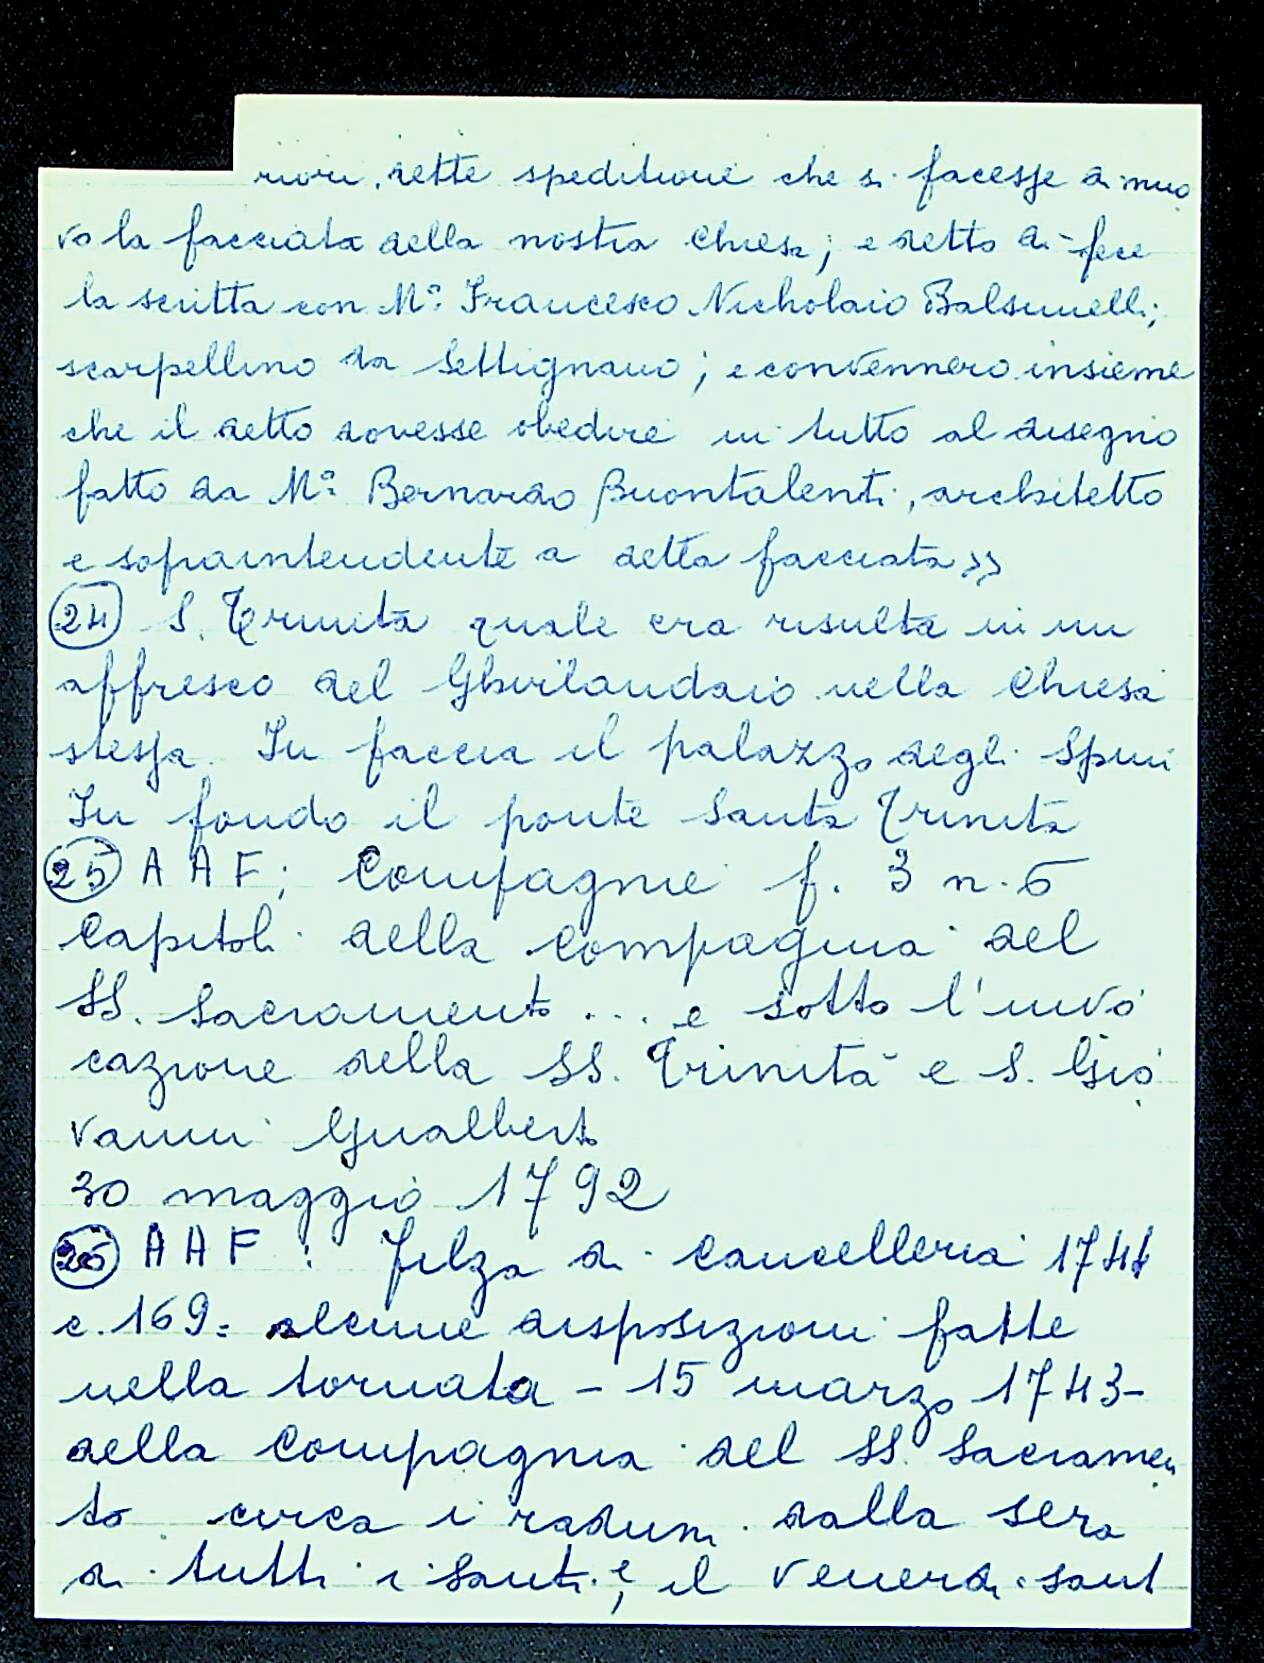 riori, dette speditione che si facesse di nuo
vo la facciata della nostra Chiesa; e detto dì fece
la scritta con M.º Francesco Nicholaio Balsimelli;
scarpellino da Settignano; e convennero insieme
che il detto dovesse obedire in tutto al disegno
fatto da M.º Bernardo Buontalenti, architetto
e sopraintendente a detta facciata»
24 S. Trinità quale era risulta in un
affresco del Ghirlandaio nella Chiesa
stessa. In faccia il palazzo degli Spini
In fondo il ponte Santa Trinita
25 A A F; Compagnie f. 3 n. 6
Capitoli della Compagnia del
SS. Sacramento ... e sotto l'invo
cazione della SS. Trinità e S. Gio
vanni Gualberto
30 maggio 1792
26 A A F: Filza di Cancelleria 1744
c. 169: alcune disposizioni fatte
nella tornata - 15 marzo 1743-
della Compagnia del SS. Sacramen
to circa i raduni dalla sera
di tutti i Santi, e il Venerdi sant